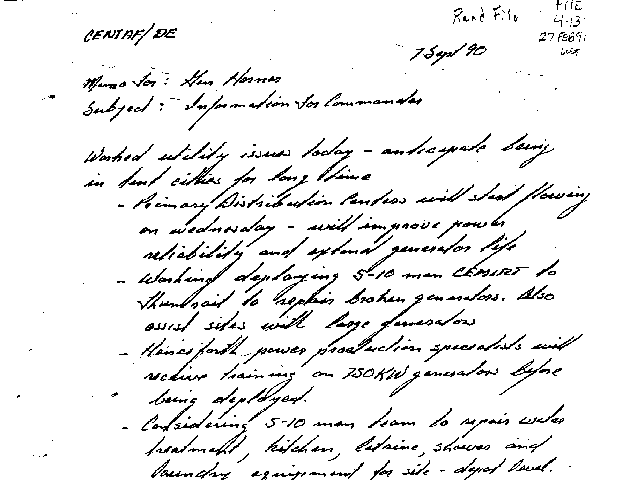 Read File
FILE
4-13
27 FEB 91
CENTAF/DE
7 Sept 90
Memo for: Gen Horner
Subject: Information for Commander
Worked utility issues today - anticipate being
in tent cities for long time
- Primary Distribution Centers will start flowing
on wednesday - will improve power
reliability and extend generator life
- Working deploying 5-10 man CEMIRT to
Thumrait to repair broken generators. Also
assist sites with large generators
- Henceforth power production specialists will
receive training on 750KW generators before
being deployed.
- Considering 5-10 man team to repair water
treatment, kitchen, latrine, shower and
laundry equipment for site - depot level.